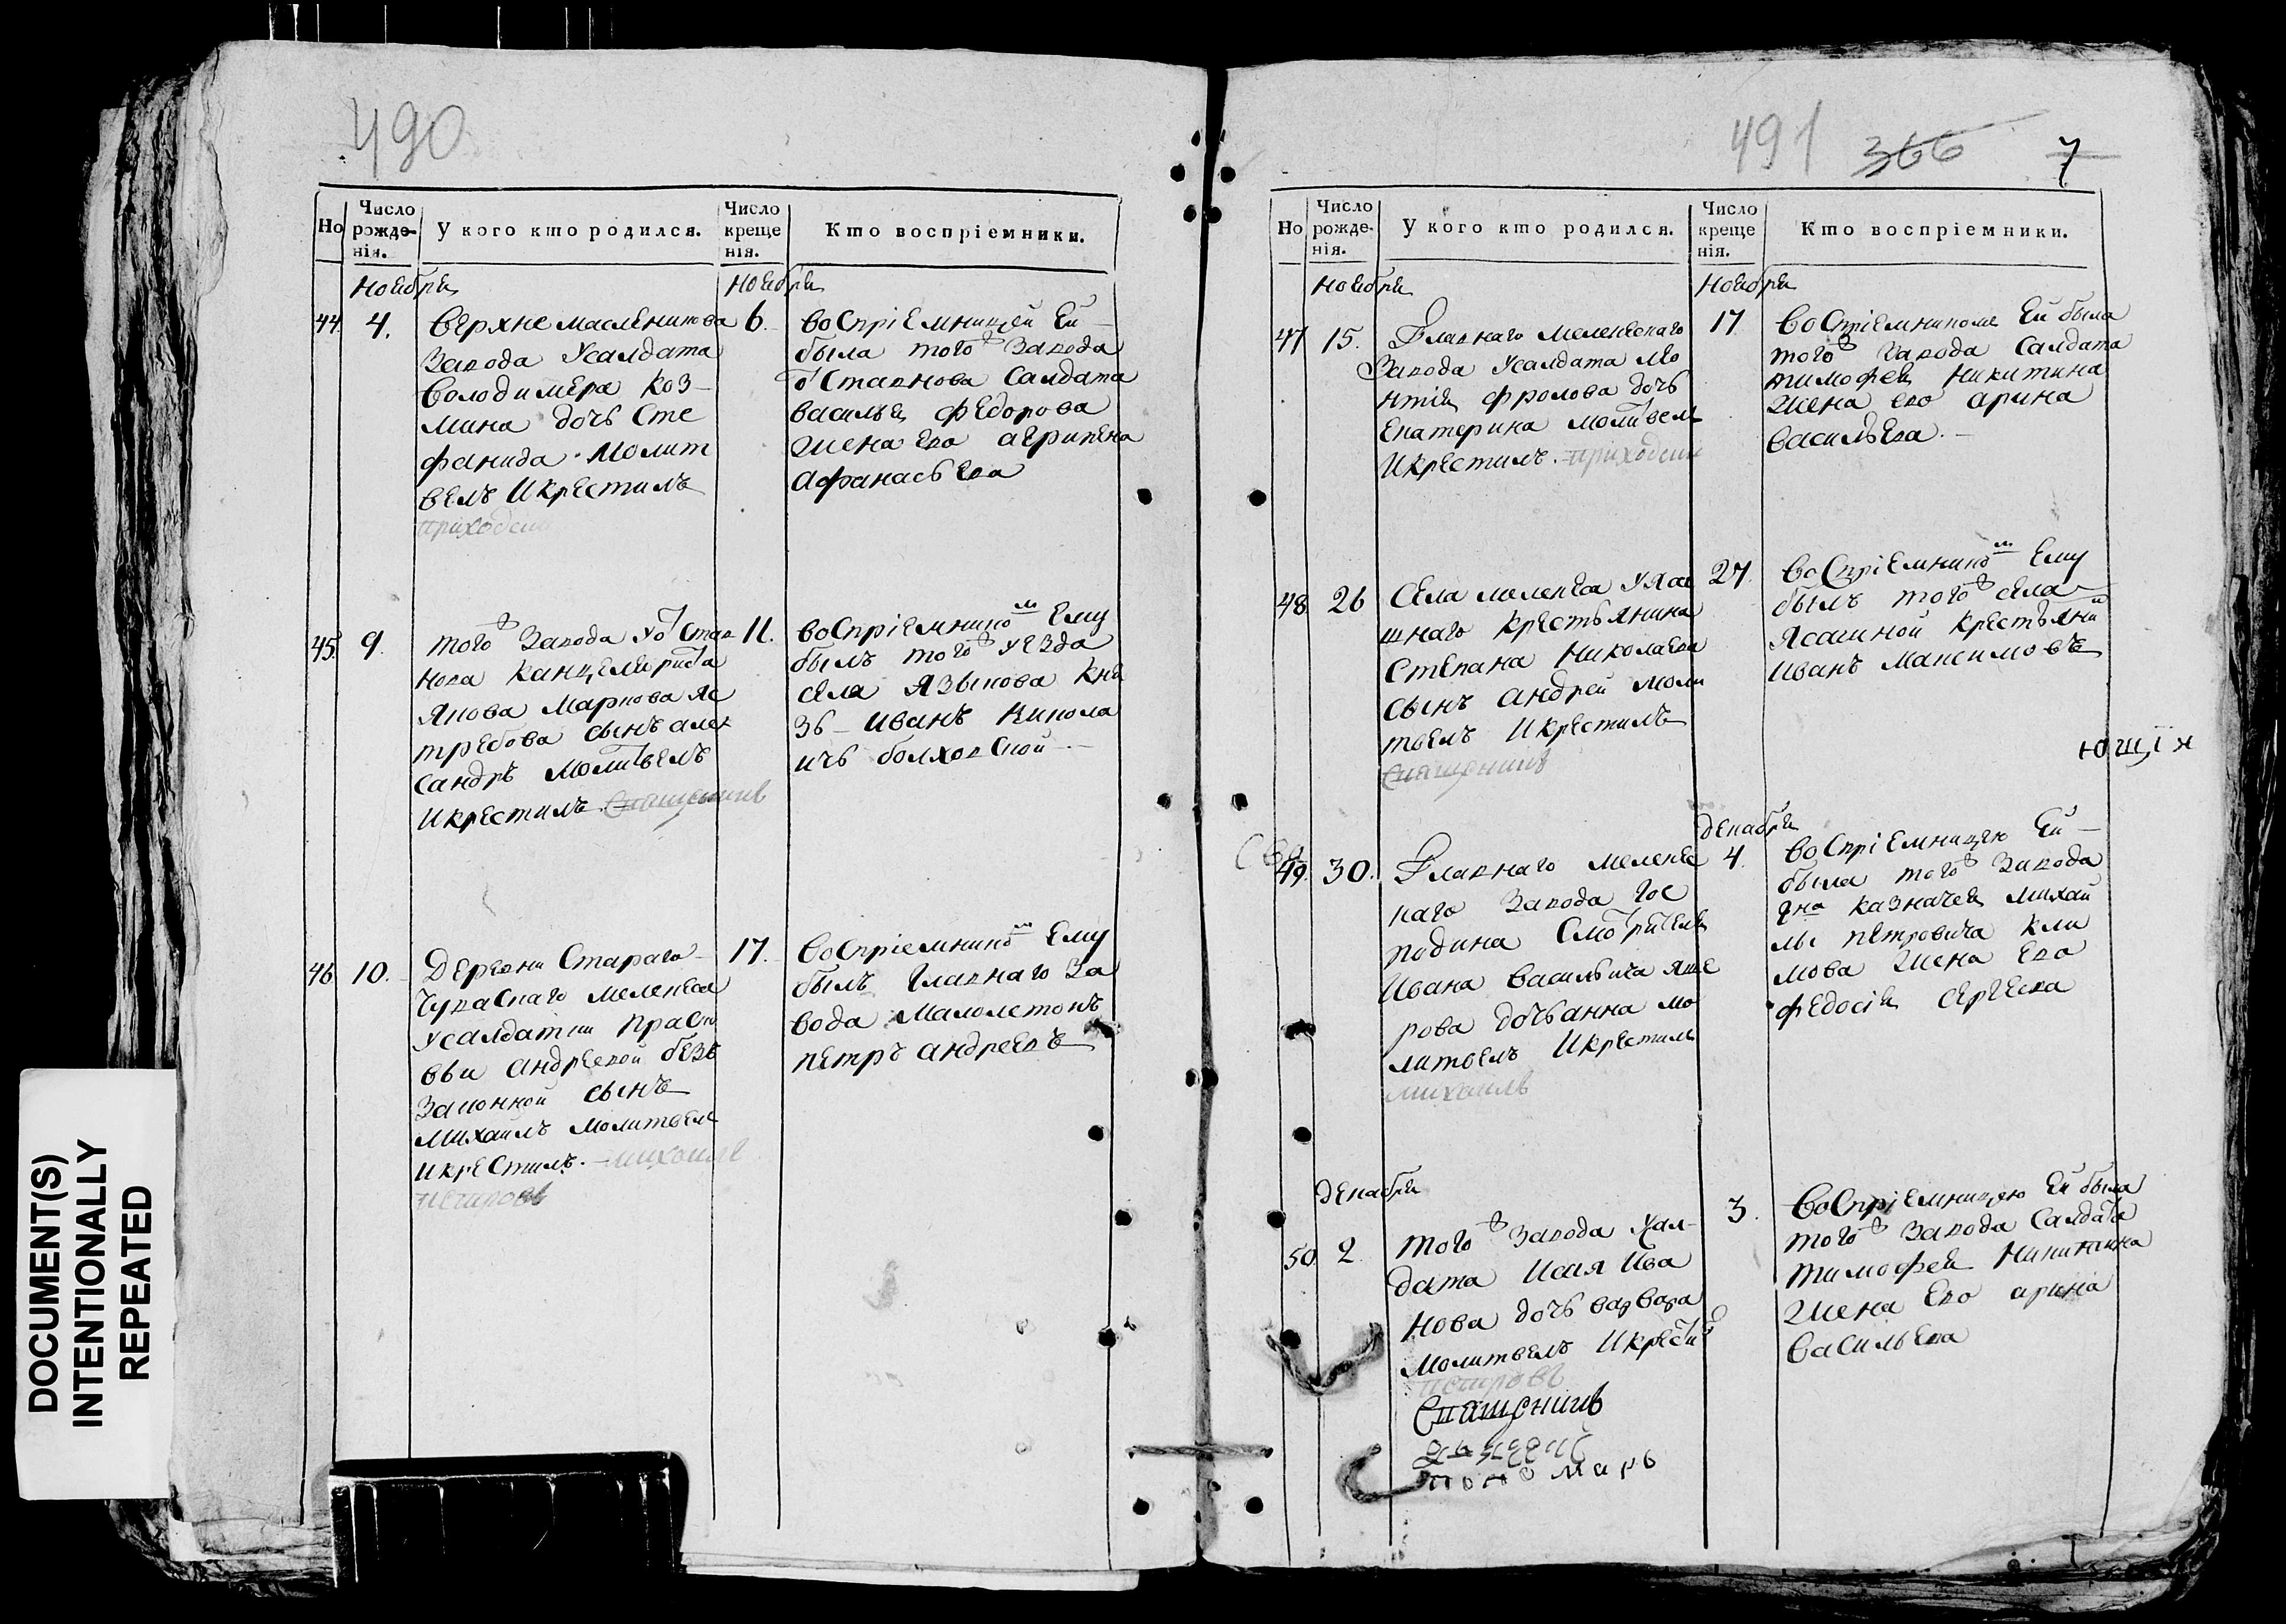 490
Но
Число рожде-нія.
У кого кто родился.
Число креще нія.
Кто воспріемники.
Ноября
Ноября
44. 4.
верхне масленикова
завода Усалдата
володимера коз-
мина дочь Сте
фанида. Молит
велъ Икрестилъ
приходски
6.
воспріемницей Ей
была того ж завода
отставнова Салдата
василья федорова
жена Ево агрипена
афанасьева
45. 9.
того ж завода уотстав
нова канцеляриста
якова маркова яс
требова сынъ алек
сандръ молитвелъ
Икрестилъ. Священникъ
11.
воспріемником Ему
былъ того ж уезда
села языкова кня
зь Иванъ Никола
ичь болховской
46. 10.
деревни Стараго
Чувасскаго мелекеса
усалдатки праско
вьи андреевой безъ
законной сынъ
михаилъ молитвел
икрестилъ. михаилъ
петровъ
17.
воспріемником Ему
былъ главнаго за
вода малолетокъ
петръ андреевъ
491 366 7
Но
Число рожде-нія.
У кого кто родился.
Число креще нія.
Кто воспріемники.
Ноября
Ноября
47 15.
Главнаго мелекескаго
завода Усалдата лео
нтія фролова дочь
Екатерина молитвел
Икрестилъ. приходски
17.
воспріемникоме Ей была
того ж завода салдата
тимофея никитина
жена ево арина
васильева.
48. 26
Села мелекеса уяса
шнаго крестьянина
Степана Николаева
сынъ андрей моли
твелъ Икрестилъ
Священникъ
27.
воспріемником Ему
былъ того ж села
ясашной крестьянин
иванъ максимовъ
ющія
49. 30.
Главнаго мелекес
каго завода гос
подина Смотрителя
Ивана васильича
рова дочь анна мо
литвелъ Икрестилъ
михаилъ
декабря
4.
воспріемницею Ей
была того ж завода
гна казначея михай
лы петровича кли
мова жена Ево
федосія сергеева
декабря
50. 2.
того ж завода Усал-
дата Исая Ива
нова дочь варвара
молитвелъ Икрестилъ
петровъ
Священникъ
пономарь
3.
воспріемницею Ей была
того ж завода Салдата
тимофея Никитина
жена Ево арина
васильева
DOCUMENT(S)
INTENTIONALLY
REPEATED